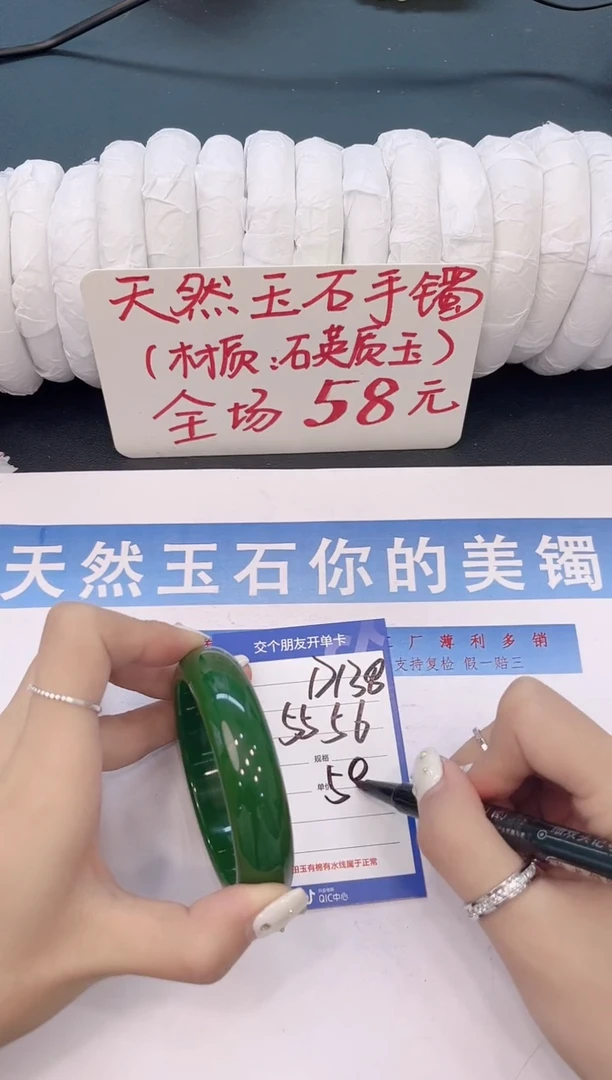 天然玉石手镯
(材质:石英质玉)
全场58元
天然玉石你的美镯
交个朋友开单卡
厂薄利多销
支持复检 假一赔三
5556
规格
单价
田玉有棉有水线属于正常
QIC中心